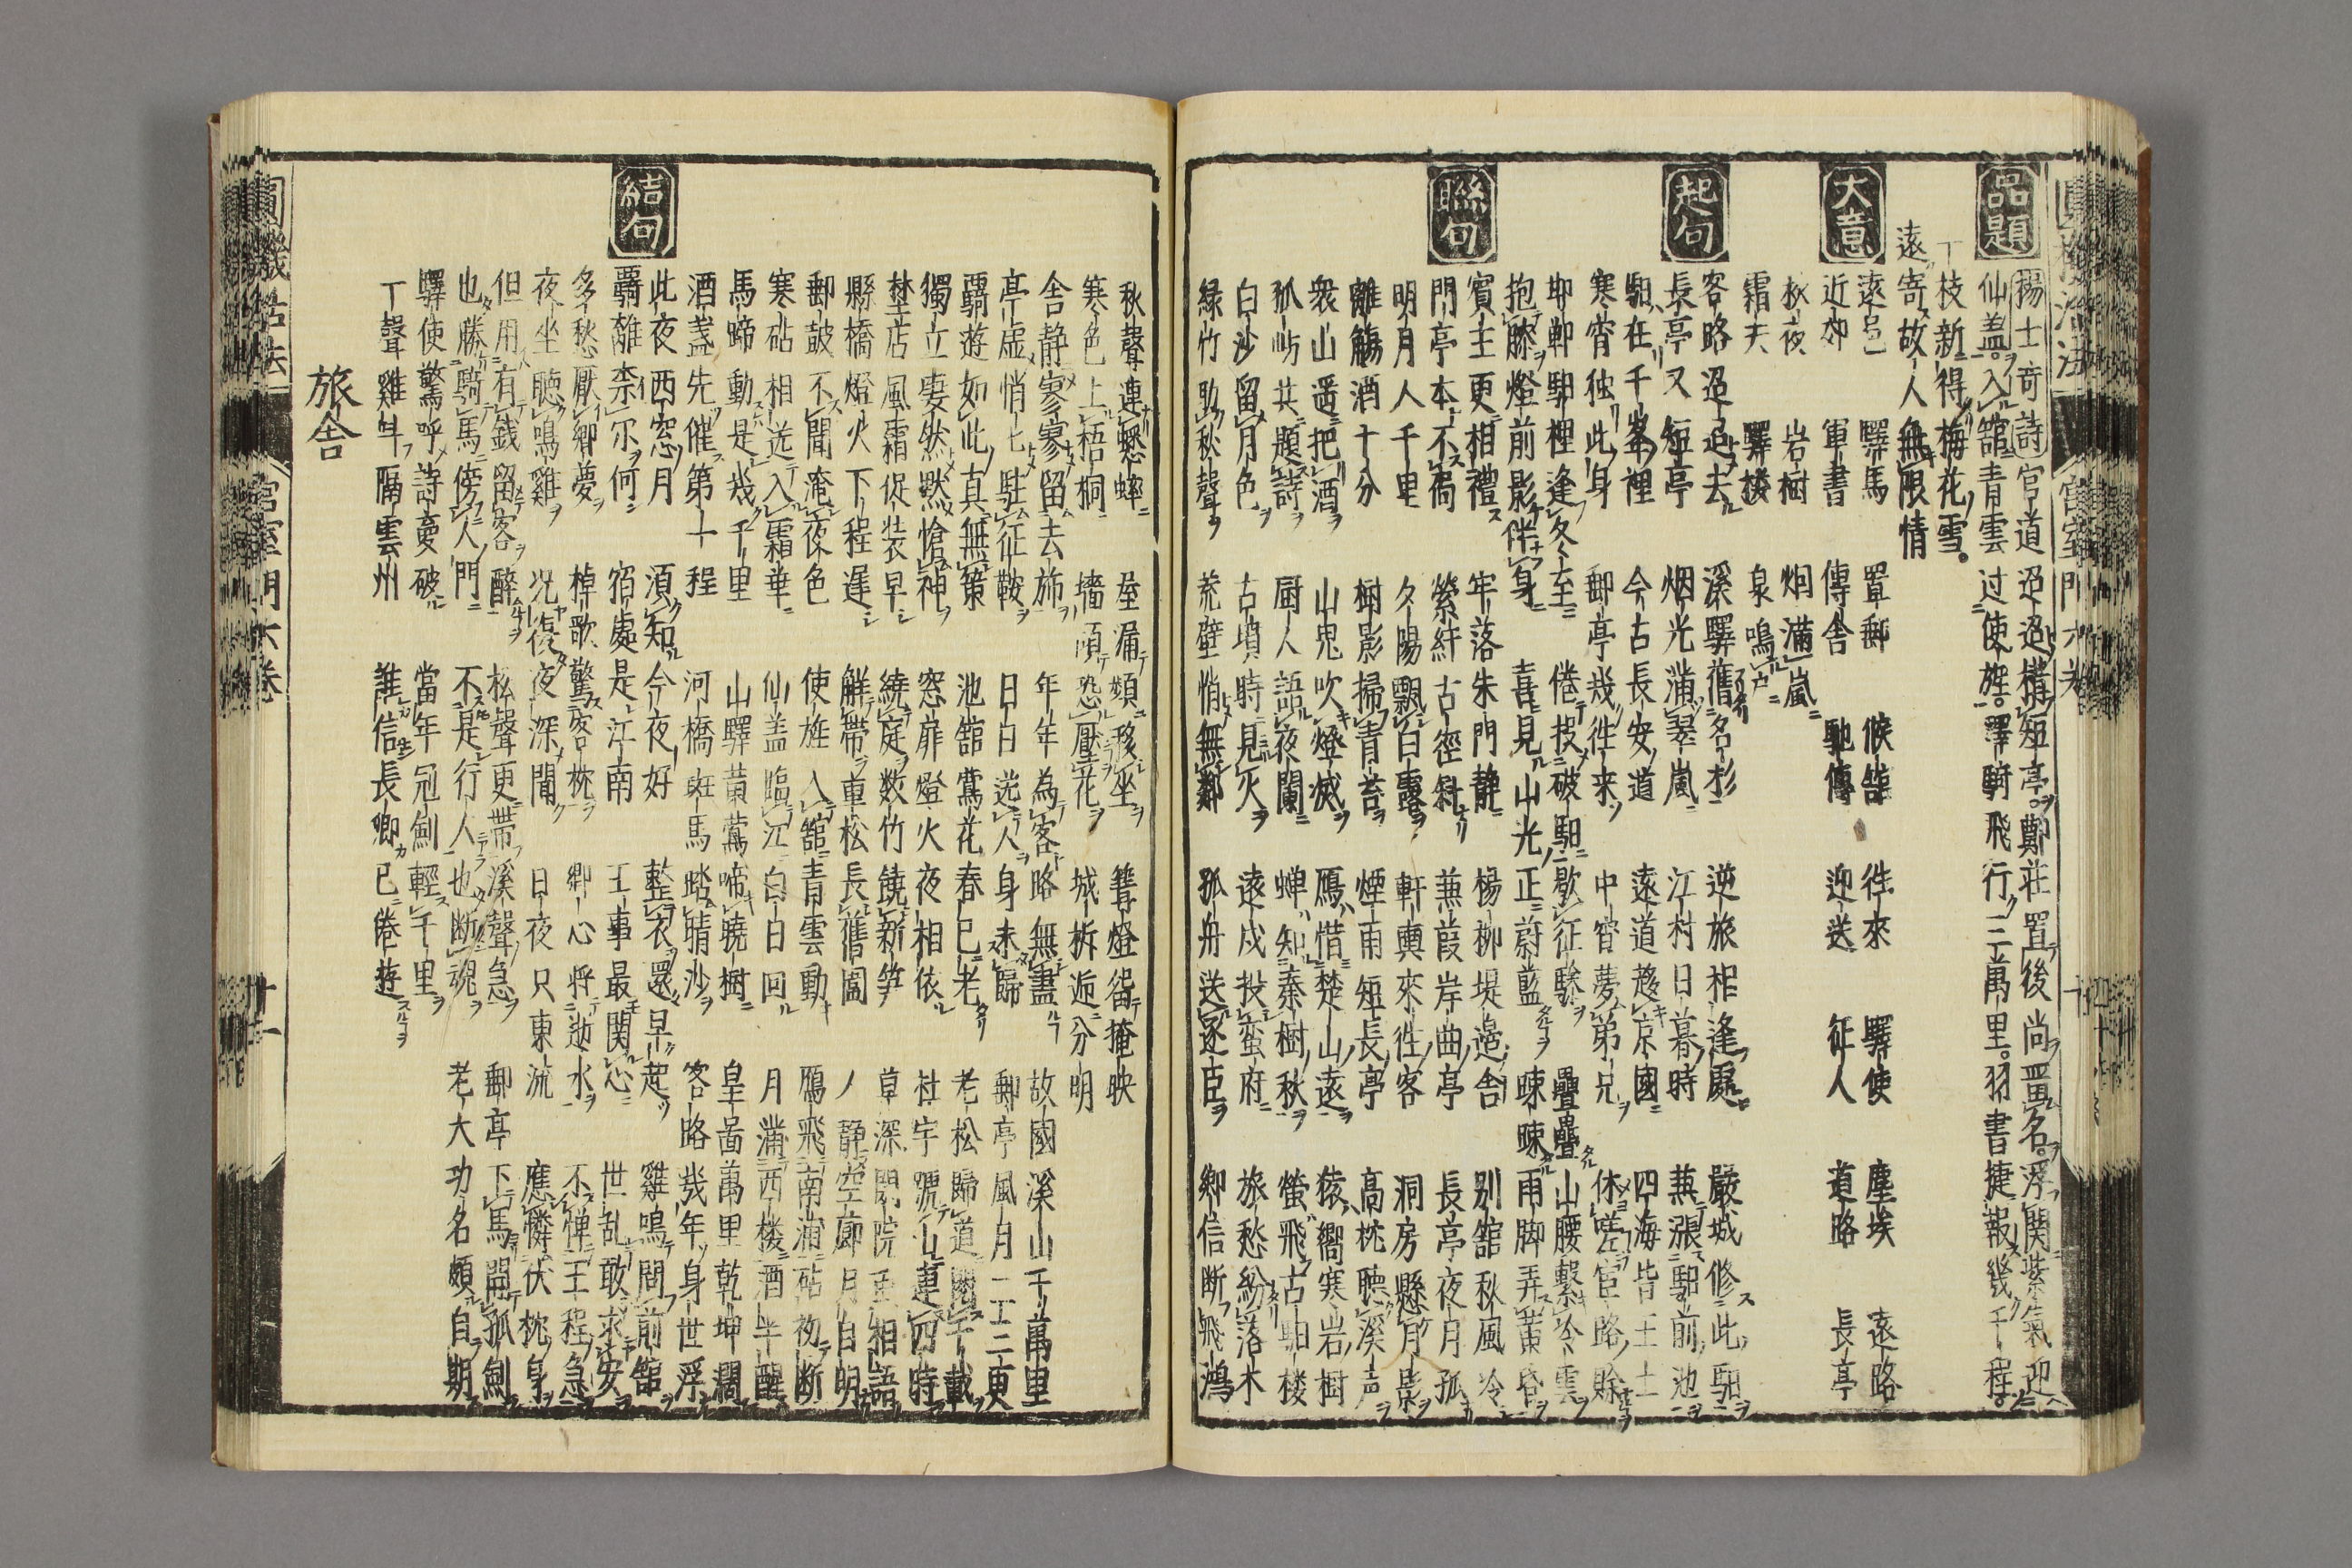 品題
楊士竒詩 官道迢迢構短亭鄭莊置後尚置名浮関紫氣迎
仙盖入舘青雲过使旌驛騎飛行三萬里羽書捷報幾千程
一枝新得梅花雪
遠寄故人無限情
大意
遠邑 驛馬 置郵 候舘 徃來 驛使 塵埃 遠路
近郊 軍書 傳舎 馳傳 迎送 征人 道路 長亭
秋夜 岩樹 烟滿嵐
霜天 驛楼 泉鳴戸
起句
客路迢迢去 溪驛舊名杉 逆旅相逢處 嚴城修此馹
長亭又短亭 烟光滴翠嵐 江村日暮時 無漲馹前池
馹在千峯裡 今古長安道 遠道趍京國 四海皆王土
寒宵独此身 郵亭幾徃来 中宵夢弟兄 休嗟宦路賖
聯句
邯鄲馹裡逢冬至 倦投破馹歇征驂 疊疊山腰繋冷雲
抱膝燈前影伴身 喜見山光正蔚藍 疎疎雨脚弄黄昏
賓主更相禮 牢落朱門静 楊柳堤邊舎 别舘秋風冷
門亭本不扃 縈紆古徑斜 蒹葭岸曲亭 長亭夜月孤
明月人千里 夕陽飄白露 軒輿來徃客 洞房懸月影
離觴酒十分 樹影掃青苔 煙雨短長亭 高枕聴溪声
衆山遥把酒 山鬼吹燈滅 鴈惜楚山遠 猿嚮寒岩樹
孤屿共題詩 厨人語夜闌 蝉知秦樹秋 螢飛古馹楼
白沙留月色 古墳時見火 遠戍投蛮府 旅愁紛落木
緑竹助秋聲 荒壁悄無鄰 孤舟送逐臣 郷信断飛鴻
秋聲連蟋蟀 屋漏頻移坐 篝燈留掩映
寒色上梧桐 墻頃恐壓花 城柝逅分明
舎静寥寥留去斾 年年為客路無盡 故國溪山千萬里
亭虚悄七駐征鞍 日日送人身未歸 郵亭風月一二更
覊遊如此真無策 池舘鶯花春已老 老松歸道國千載
獨立凄然黙愴神 窓扉燈火夜相依 杜宇號山連四時
埜店風霜促装早 繞庭数竹饒新笋 草深門院虫相語
縣橋燈火下程遅 觧帶車松長舊圍 人静空廊月自明
郵皷不聞淹夜色 使旌入舘青雲動 鴈飛南浦砧初断
寒砧相送入霜華 仙盖臨江白日回 月滿西楼酒半醒
馬蹄動是幾千里 山驛黄鶯啼曉樹 皇啚萬里乾坤濶
酒盞先催第十程 河橋班馬踏晴沙 客路幾年身世浮
結句
此夜西窓月 湏知今夜好 整衣還早起 雞鳴問前舘
覊離柰尓何 宿處是江南 王事最関心 世乱敢求安
多愁厭郷夢 棹歌驚客枕 郷心将逝水 不憚王程急
夜坐聴鳴雞 况復夜深聞 日夜只東流 應憐伏枕身
但用有銭留客醉 松聲更帶溪聲急 郵亭下馬問孤劍
也勝騎馬傍人門 不是行人也断魂 老大功名頗自期
驛使驚呼詩夢破 當年冠劍輕千里
一聲雞牛隔雲州 誰信長卿已倦遊
旅舎